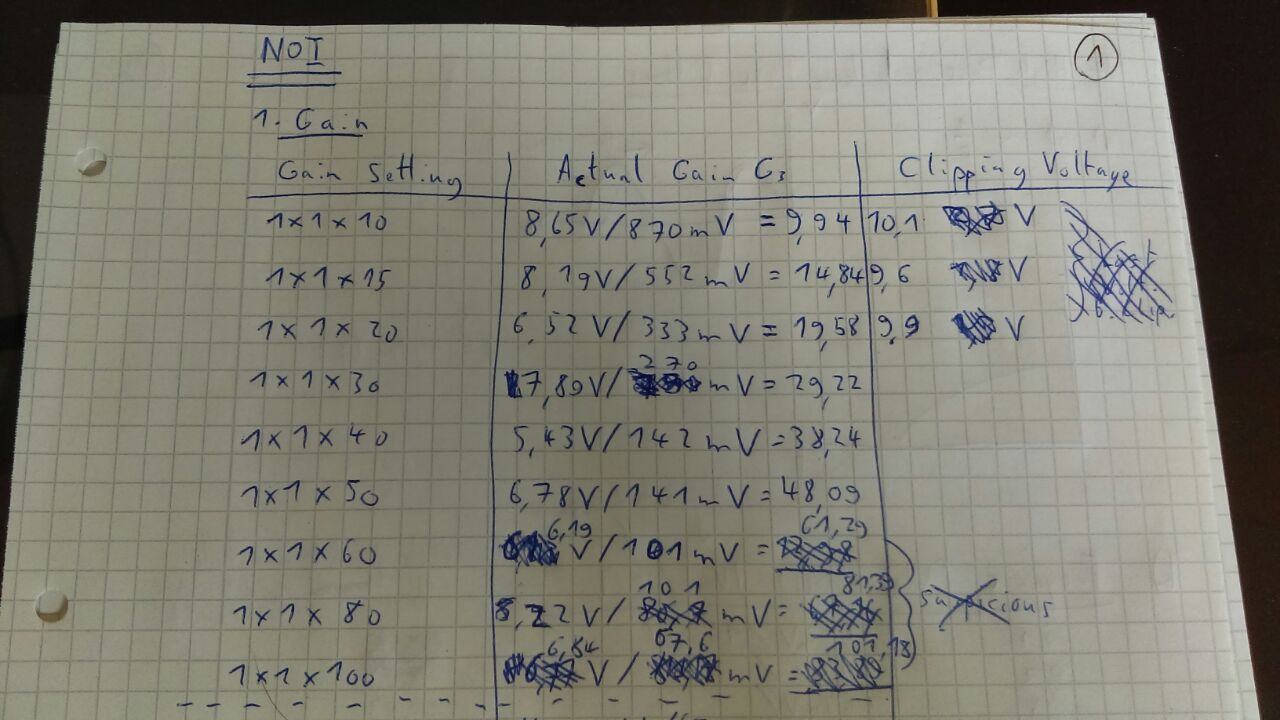 NOI
1
1. Gain
Gain Setting Actual Gain G₃ Clipping Voltage
1×1×10 8,65V/870mV = 9,94 10,1 V
1×1×15 8,19V/552mV = 14,84 9,6 V
1×1×20 6,52V/333mV = 19,58 9,9 V
1×1×30 7,89V/270mV = 29,22
1×1×40 5,43V/142mV = 38,24
1×1×50 6,78V/141mV = 48,09
1×1×60 6,19V/101mV = 61,29
1×1×80 8,22V/101mV = 81,39 suspicious
1×1×100 6,84V/67,6mV = 101,18